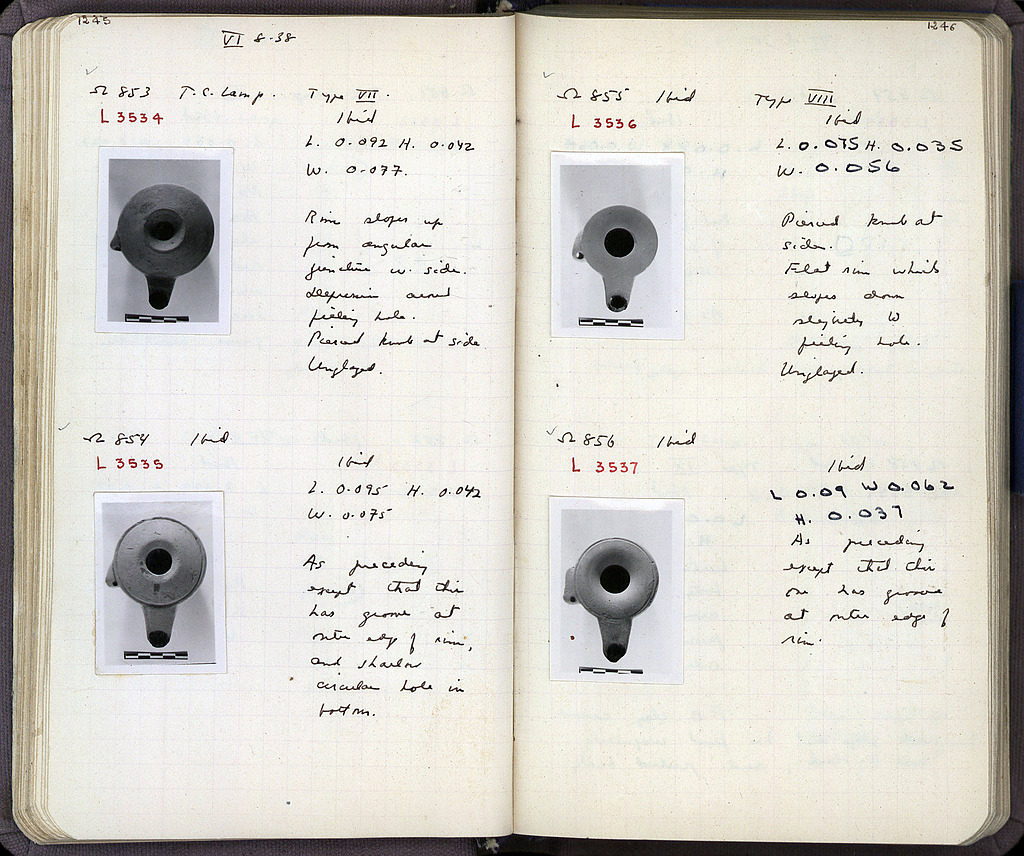 1245
VI 8-38
Ω 853 T.C. Lamp. Type VII.
L 3534 Ibid
L. 0.092 H. 0.042
W. 0.077.
Rim slopes up
from angular
juncture w. side.
Depression around
filling hole.
Pierced knob at side
Unglazed.
Ω 854 Ibid
L 3535 Ibid
L. 0.095 H. 0.042
W. 0.075
As preceding
except that this
has groove at
outer edge of rim,
and shallow
circular hole in
bottom.
1246
Ω 855 Ibid Type VIII
L 3536 Ibid
L. 0.075 H. 0.035
W. 0.056
Pierced knob at
side.
Flat rim which
slopes down
slightly to
filling hole.
Unglazed.
Ω 856 Ibid
L 3537 Ibid
L 0.09 W 0.062
H. 0.037
As preceding
except that this
one has groove
at outer edge of
rim.